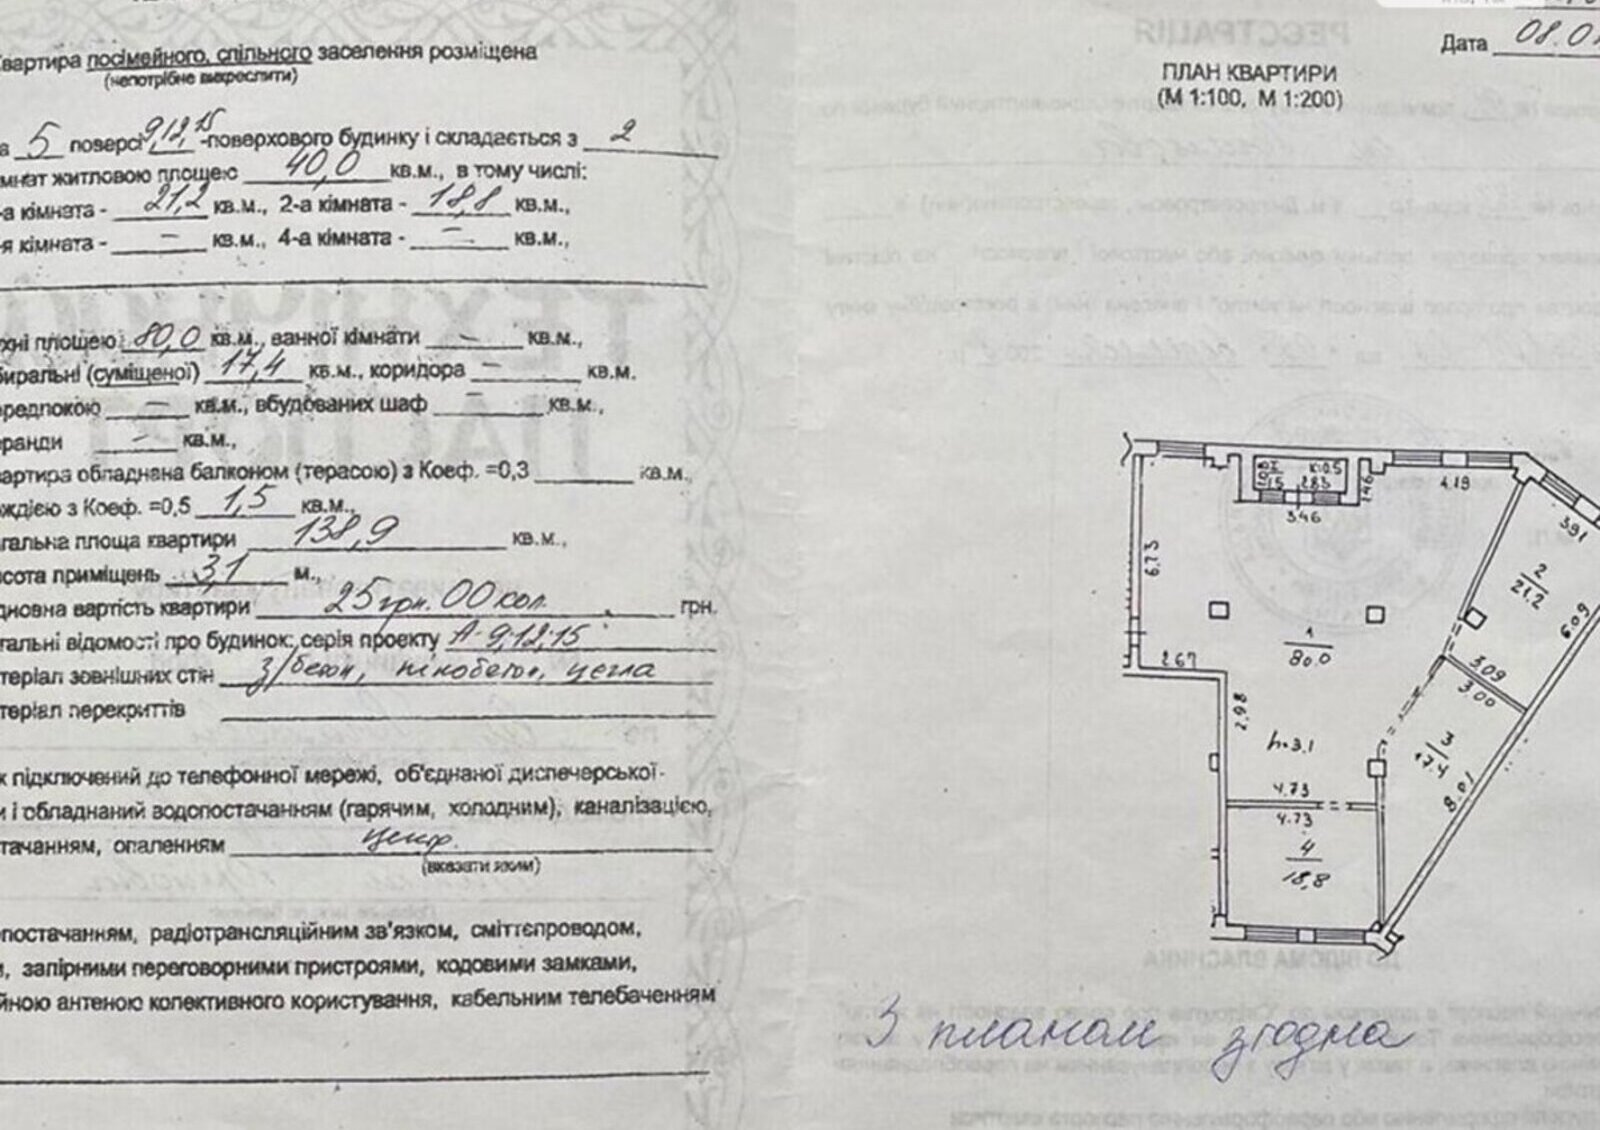 вартира посімейного, спільного заселення розміщена
(непотрібне викреслити)
а 5 поверсі 9,12,15 -поверхового будинку і складається з 2
мнат житловою площею 40,0 кв.м., в тому числі:
-а кімната - 21,2 кв.м., 2-а кімната - 18,8 кв.м.,
-я кімната - – кв.м., 4-а кімната - – кв.м.,
хні площею 80,0 кв.м., ванної кімнати – кв.м.,
биральні (суміщеної) 17,4 кв.м., коридора – кв.м.
ередпокою – кв.м., вбудованих шаф – кв.м.,
еранди – кв.м.,
вартира обладнана балконом (терасою) з Коеф. =0,3 кв.м.,
оджією з Коеф. =0,5 1,5 кв.м.,
гальна площа квартири 138,9 кв.м.,
сота приміщень 3,1 м.,
дновна вартість квартири 25 грн. 00 коп. грн.
гальні відомості про будинок: серія проекту А-9,12,15
теріал зовнішних стін з/бетон, пінобетон, цегла
теріал перекриттів
к підключений до телефонної мережі, об'єднаної диспечерської-
и і обладнаний водопостачанням (гарячим, холодним), каналізацією,
тачанням, опаленням центр.
(вказати яким)
постачанням, радіотрансляційним зв'язком, сміттєпроводом,
и, запірними переговорними пристроями, кодовими замками,
йною антеною колективного користування, кабельним телебаченням
Дата 08.01
ПЛАН КВАРТИРИ
(М 1:100, М 1:200)
I
1.5
К=0.5
2.83
3.46
1.46
4.19
3.91
6.73
2
21.2
6.09
1
80.0
2.67
3.09
3.00
2.98
h=3.1
3
17.4
8.01
4.73
4.73
4
18,8
З планом згодна